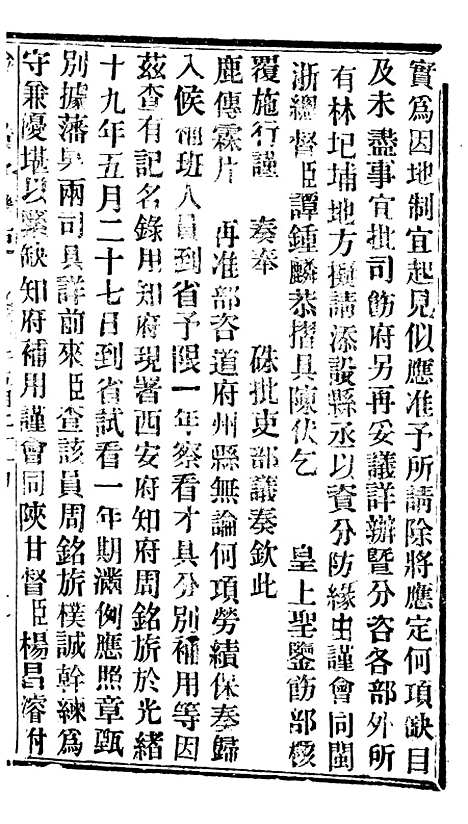 實爲因地制宜起見似應准予所請除將應定何項缺目
及未盡事宜批司飭府另再妥議詳辦暨分咨各部外所
有林圯埔地方擬請添設縣丞以資分防緣由謹會同閩
浙總督臣譚鍾麟恭摺具陳伏乞 皇上聖鑒飭部核
覆施行謹 奏奉 硃批吏部議奏欽此
鹿傳霖片 再准部咨道府州縣無論何項勞績保奏歸
入候補班人員到省予限一年察看才具分別補用等因
茲查有記名錄用知府現署西安府知府周銘旂於光緒
十九年五月二十七日到省試看一年期滿例應照章甄
別據藩臬兩司具詳前來臣查該員周銘旂樸誠幹練爲
守兼優堪以繁缺知府補用謹會同陝甘督臣楊昌濬附